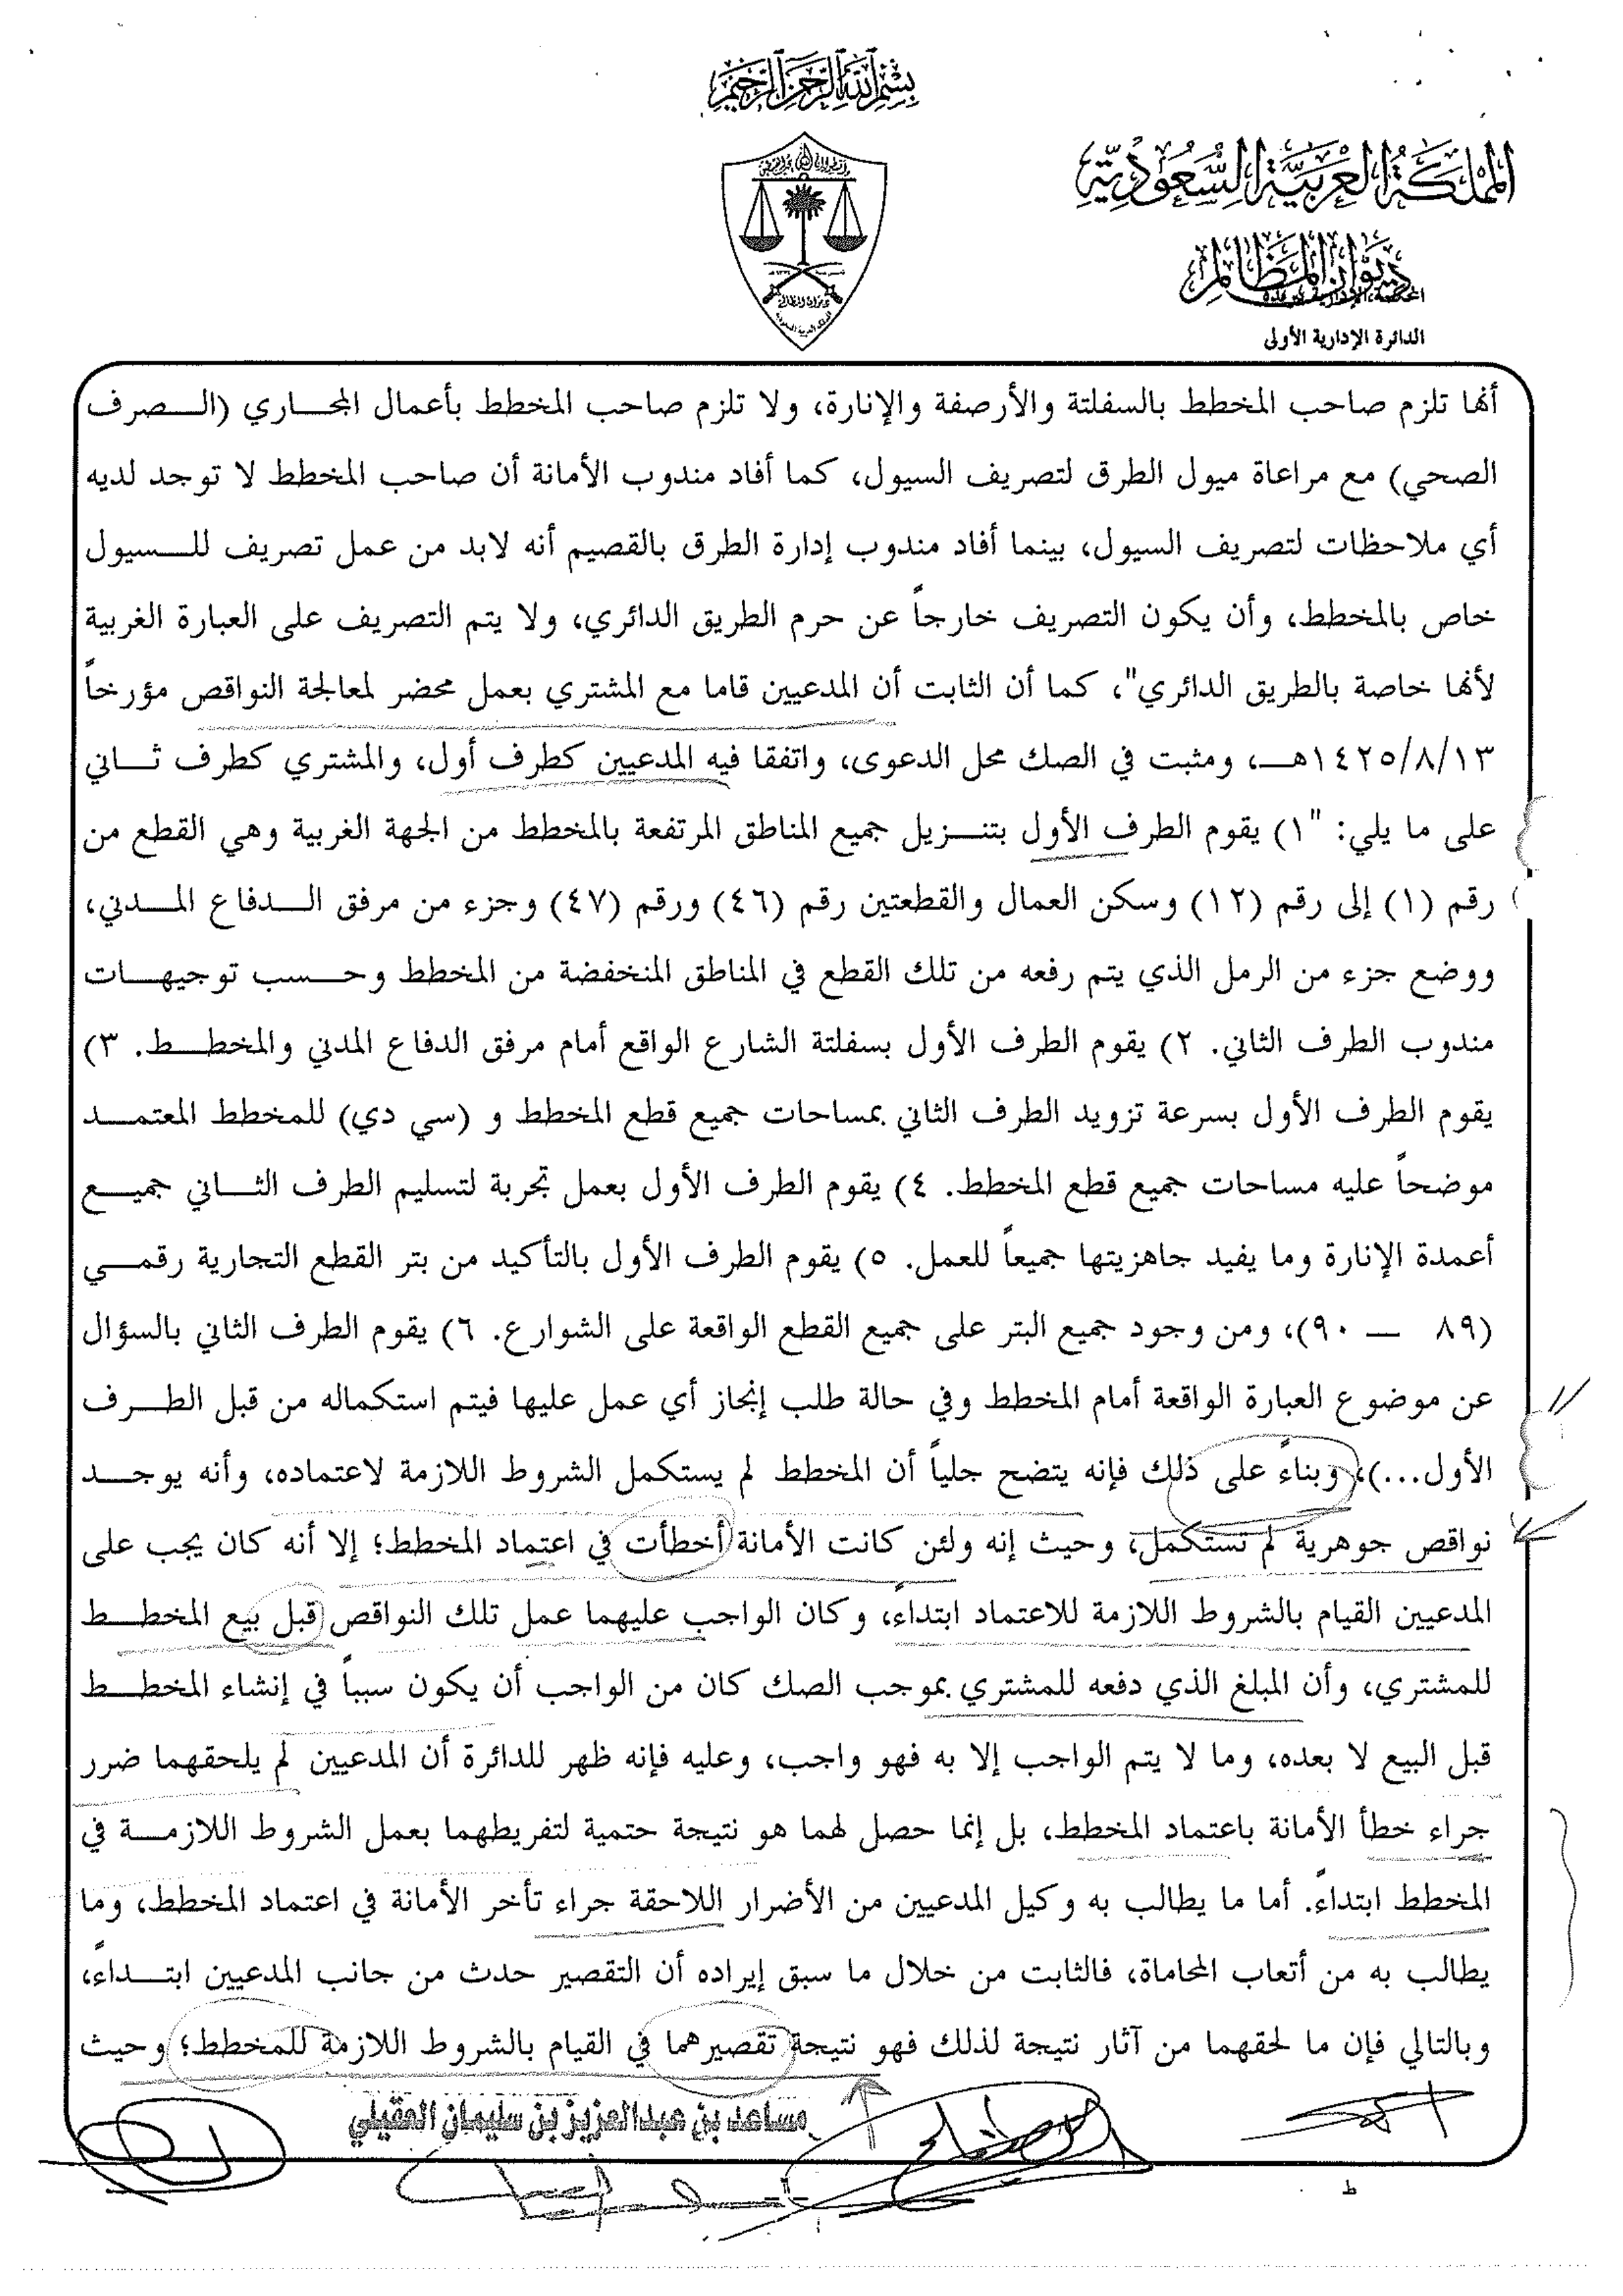 بسم الله الرحمن الرحيم
المملكة العربية السعودية
ديوان المظالم
المحكمة الإدارية ببريدة
الدائرة الإدارية الأولى
ديوان المظالم
أنها تلزم صاحب المخطط بالسفلتة والأرصفة والإنارة، ولا تلزم صاحب المخطط بأعمال المجاري (الصرف
الصحي) مع مراعاة ميول الطرق لتصريف السيول، كما أفاد مندوب الأمانة أن صاحب المخطط لا توجد لديه
أي ملاحظات لتصريف السيول، بينما أفاد مندوب إدارة الطرق بالقصيم أنه لابد من عمل تصريف للسيول
خاص بالمخطط، وأن يكون التصريف خارجاً عن حرم الطريق الدائري، ولا يتم التصريف على العبارة الغربية
لأنها خاصة بالطريق الدائري"، كما أن الثابت أن المدعيين قاما مع المشتري بعمل محضر لمعالجة النواقص مؤرخاً
١٤٢٥/٨/١٣هـ، ومثبت في الصك محل الدعوى، واتفقا فيه المدعيين كطرف أول، والمشتري كطرف ثاني
على ما يلي: "١) يقوم الطرف الأول بتنزيل جميع المناطق المرتفعة بالمخطط من الجهة الغربية وهي القطع من
رقم (١) إلى رقم (١٢) وسكن العمال والقطعتين رقم (٤٦) ورقم (٤٧) وجزء من مرفق الدفاع المدني،
ووضع جزء من الرمل الذي يتم رفعه من تلك القطع في المناطق المنخفضة من المخطط وحسب توجيهات
مندوب الطرف الثاني. ٢) يقوم الطرف الأول بسفلتة الشارع الواقع أمام مرفق الدفاع المدني والمخطط. ٣)
يقوم الطرف الأول بسرعة تزويد الطرف الثاني بمساحات جميع قطع المخطط و (سي دي) للمخطط المعتمد
موضحاً عليه مساحات جميع قطع المخطط. ٤) يقوم الطرف الأول بعمل تجربة لتسليم الطرف الثاني جميع
أعمدة الإنارة وما يفيد جاهزيتها جميعاً للعمل. ٥) يقوم الطرف الأول بالتأكيد من بتر القطع التجارية رقمي
(٨٩ – ٩٠)، ومن وجود جميع البتر على جميع القطع الواقعة على الشوارع. ٦) يقوم الطرف الثاني بالسؤال
عن موضوع العبارة الواقعة أمام المخطط وفي حالة طلب إنجاز أي عمل عليها فيتم استكماله من قبل الطرف
الأول...)، وبناءً على ذلك فإنه يتضح جلياً أن المخطط لم يستكمل الشروط اللازمة لاعتماده، وأنه يوجد
نواقص جوهرية لم تستكمل، وحيث إنه ولئن كانت الأمانة أخطأت في اعتماد المخطط؛ إلا أنه كان يجب على
المدعيين القيام بالشروط اللازمة للاعتماد ابتداءً، وكان الواجب عليهما عمل تلك النواقص قبل بيع المخطط
للمشتري، وأن المبلغ الذي دفعه للمشتري بموجب الصك كان من الواجب أن يكون سبباً في إنشاء المخطط
قبل البيع لا بعده، وما لا يتم الواجب إلا به فهو واجب، وعليه فإنه ظهر للدائرة أن المدعيين لم يلحقهما ضرر
جراء خطأ الأمانة باعتماد المخطط، بل إنما حصل لهما هو نتيجة حتمية لتفريطهما بعمل الشروط اللازمة في
المخطط ابتداءً. أما ما يطالب به وكيل المدعيين من الأضرار اللاحقة جراء تأخر الأمانة في اعتماد المخطط، وما
يطالب به من أتعاب المحاماة، فالثابت من خلال ما سبق إيراده أن التقصير حدث من جانب المدعيين ابتداءً،
وبالتالي فإن ما لحقهما من آثار نتيجة لذلك فهو نتيجة تقصيرهما في القيام بالشروط اللازمة للمخطط؛ وحيث
مساعد بن عبدالعزيز بن سليمان العقيلي
ط